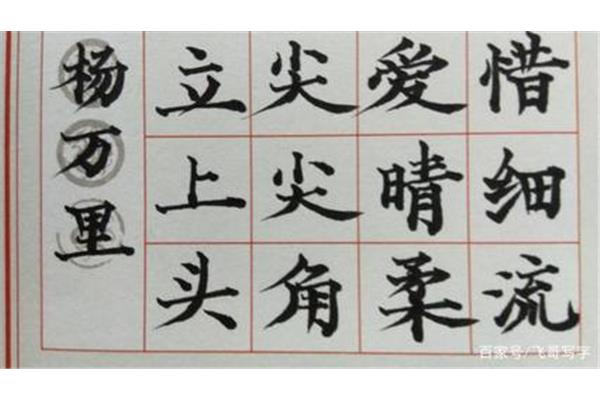 惜细流
爱晴柔
尖尖角
立上头
杨万里
百家号/飞哥写字